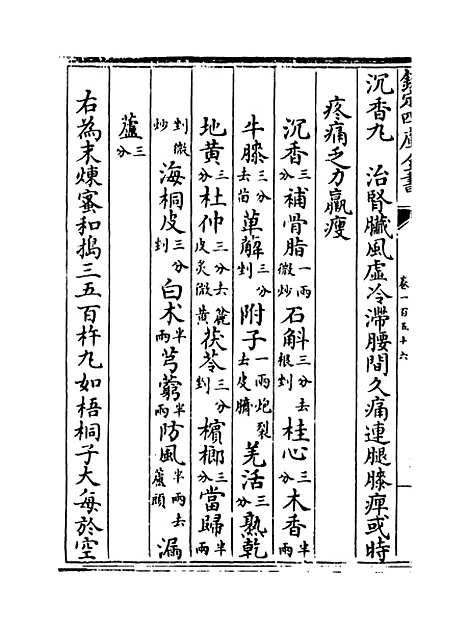 欽定四庫全書 卷一百五十六
沉香丸 治腎臟風虛冷滯腰間久痛連腿膝痺或時
疼痛乏力羸瘦
沉香三分 補骨脂一兩微炒 石斛三分去根剉 桂心三分 木香半兩
牛膝三分去苗 萆薢三分剉 附子一兩炮裂去皮臍 羌活三分 熟乾
地黃三分 杜仲三分去麄皮炙微黃 茯苓三分剉 檳榔三分 當歸半兩
剉微炒 海桐皮三分剉 白术半兩 芎藭半兩 防風半兩去蘆頭 漏
蘆三分
右為末煉蜜和搗三五百杵丸如梧桐子大每於空